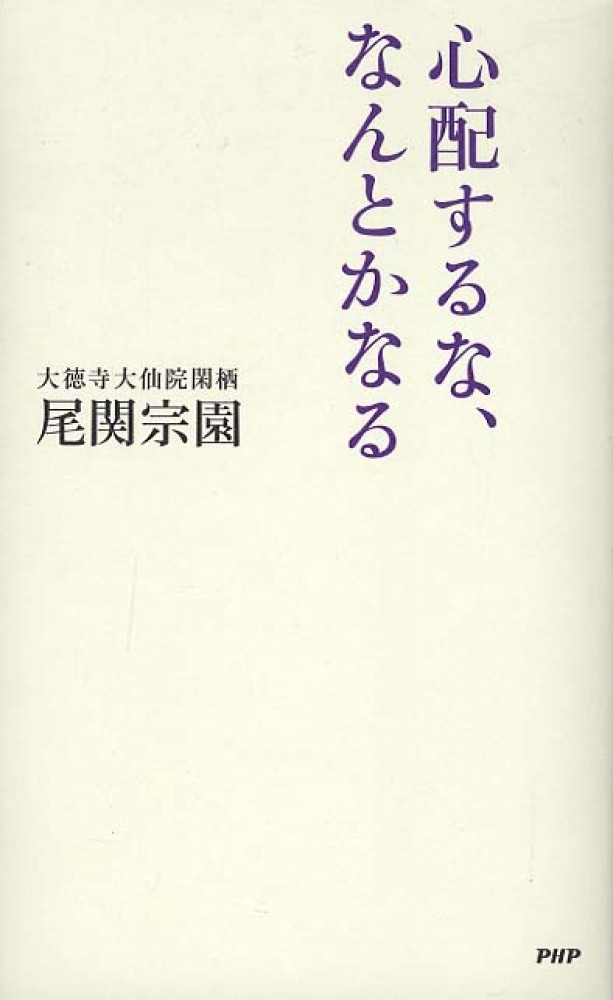 心配するな、
なんとかなる
大徳寺大仙院閑栖
尾関宗園
PHP